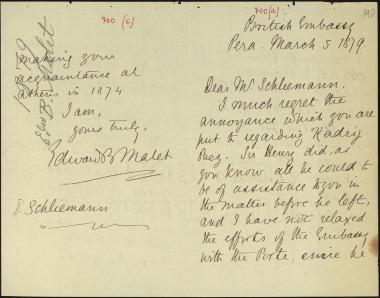 700 (a)
British Embassy
Pera. March 5 1879.
Dear Mr Schliemann,
I much regret the
annoyance which you are
put to regarding Kadry
Bey. Sir Henry did, as
you know all he could to
be of assistance to you in
the matter before he left,
and I have not relaxed
the efforts of the Embassy
with the Porte, since he
700 (c)
making your
acquaintance at
Athens in 1874
I am,
yours truly,
Edward B Malet
Schliemann
1879
B. Malet